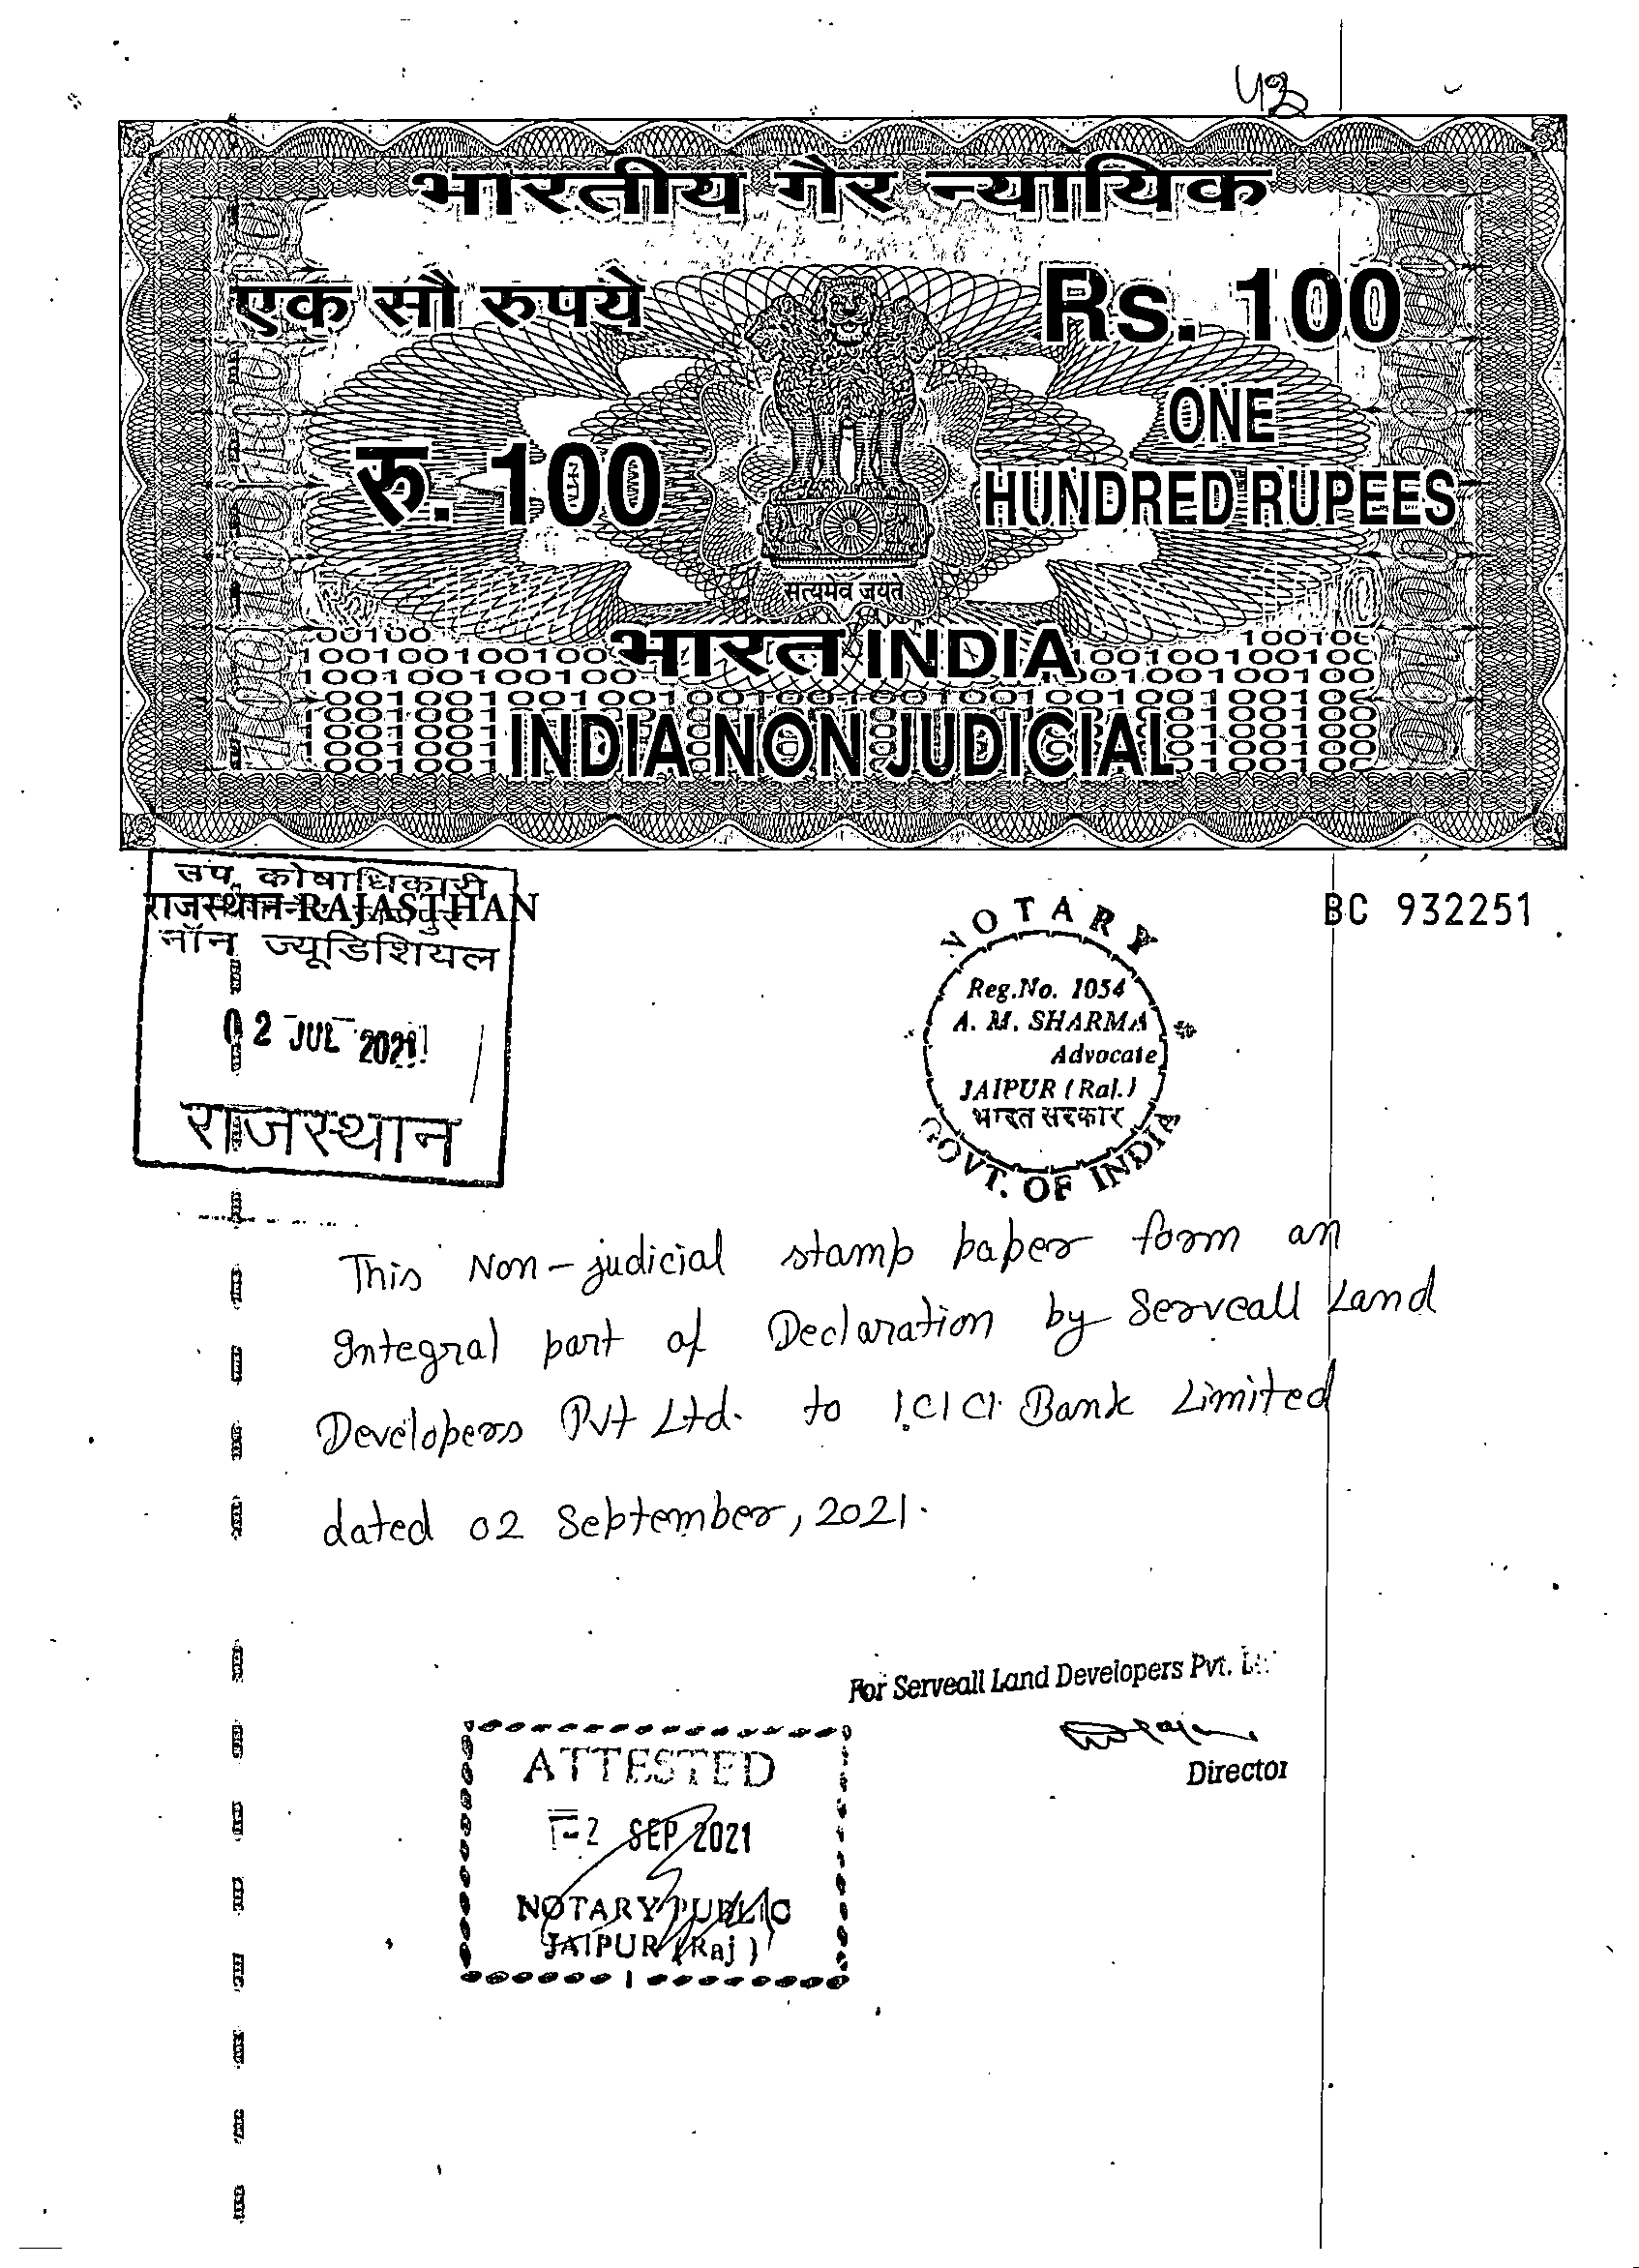 43
भारतीय गैर न्यायिक
एक सौ रुपये
Rs. 100
रु. 100
ONE
HUNDRED RUPEES
सत्यमेव जयते
भारत INDIA
INDIA NON JUDICIAL
उप. कोषाधिकारी
राजस्थान RAJASTHAN
नॉन ज्यूडिशियल
02 JUL 2021
राजस्थान
BC 932251
NOTARY
Reg.No. 1054
A. M. SHARMA
Advocate
JAIPUR (Raj.)
भारत सरकार
GOVT. OF INDIA
This Non-judicial stamp paper form an
Integral part of Declaration by Serveall Land
Developers Pvt Ltd. to ICICI Bank Limited
dated 02 September, 2021.
For Serveall Land Developers Pvt.
Director
ATTESTED
-2 SEP 2021
NOTARY PUBLIC
JAIPUR (Raj)